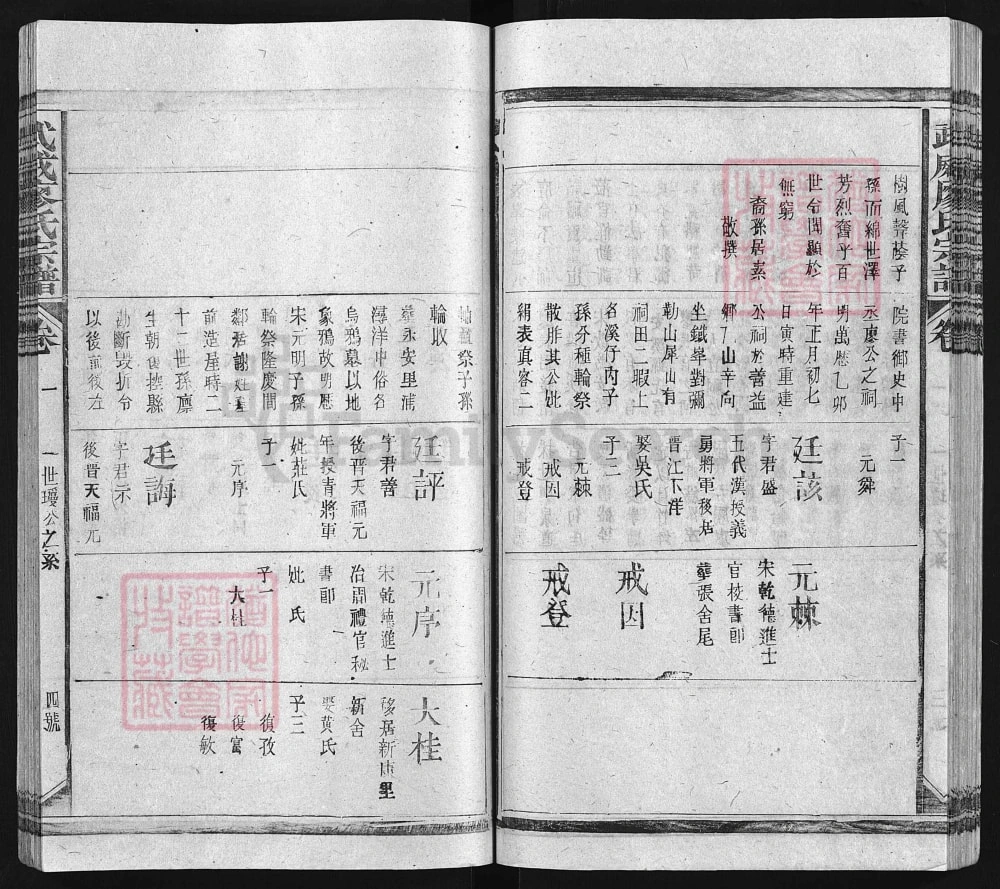 武威廖氏宗譜
卷
樹風聲蔭子
孫而綿世澤
芳烈奮乎百
世令聞顯於
無窮
裔孫居素
敬撰
院書御史中
丞廖公之祠
明萬歷乙卯
年正月初七
日寅時重建
公祠於善益
鄉丁山辛向
坐鐵阜對彌
勒山犀山有
祠田二瑕上
名溪仔內子
孫分種輪祭
散胙其公妣
絹表真容二
子一
元舜
廷該
字君盛
五代漢授義
勇將軍移居
晋江下洋
娶吳氏
子三
元棘
戒因
戒登
元棘
宋乾德進士
官校書郎
葬張舍尾
戒因
戒登
祭子孫
輪收
葬永安里浦
潯洋中俗名
烏鴉墓以地
象鴉故明歷
宋元明子孫
輪祭隆慶間
鄰居謝姓
前造屋時二
十二世孫廪
生朝春控縣
勘斷毀折令
以後前後左
廷評
字君善
後晋天福元
年授青將軍
妣莊氏
子一
元序
廷誨
字君示
後晋天福元
元序
宋乾德進士
冶開禮官秘
書郎
妣 氏
子一
大桂
大桂
移居新康里
新舍
娶黄氏
子三
復孜
復富
復敏
武威廖氏宗譜
卷一
一世瓊公之系
四號
FamilySearch